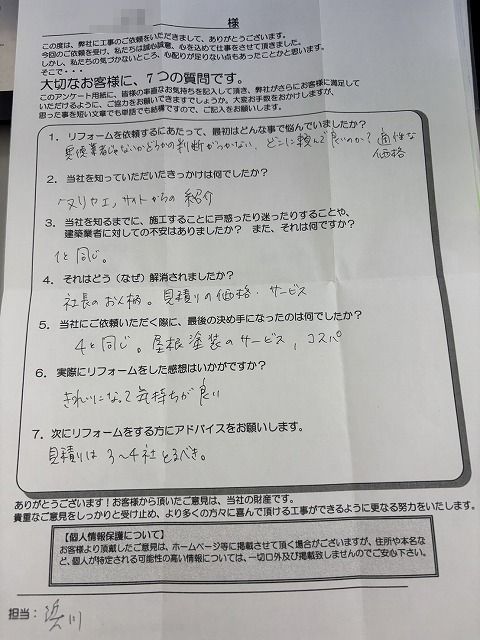 様
この度は、弊社に工事のご依頼をいただきまして、ありがとうございます。
今回のご依頼を受け、私たちは誠心誠意、心を込めて仕事をさせて頂きました。
しかし、私たちの気づかないところ、心配りが足りない点もあったことかと思います。
そこで・・・
大切なお客様に、7つの質問です。
このアンケート用紙に、皆様の率直なお気持ちを記入して頂き、弊社がさらにお客様に満足して
いただけるように、ご協力をお願いできますでしょうか。大変お手数をおかけしますが、
思った事を短い文章でも単語でも結構ですので、ご記入をお願いします。
1. リフォームを依頼するにあたって、最初はどんな事で悩んでいましたか?
悪徳業者じゃないかどうかの判断がつかない、どこに頼んで良いのか? 適性な
価格
2. 当社を知っていただいたきっかけは何でしたか?
ヌリカエ,サイトからの紹介
3. 当社を知るまでに、施工することに戸惑ったり迷ったりすることや、
建築業者に対しての不安はありましたか? また、それは何ですか?
1と同じ。
4. それはどう(なぜ)解消されましたか?
社長のお人柄。見積りの価格・サービス
5. 当社にご依頼いただく際に、最後の決め手になったのは何でしたか?
4と同じ。屋根塗装のサービス, コスパ
6. 実際にリフォームをした感想はいかがですか?
きれいになって気持ちが良い
7. 次にリフォームをする方にアドバイスをお願いします。
見積りは3~4社とるべき。
ありがとうございます!お客様から頂いたご意見は、当社の財産です。
貴重なご意見をしっかりと受け止め、より多くの方々に喜んで頂ける工事ができるように更なる努力をいたします。
【個人情報保護について】
お客様より頂戴したご意見は、ホームページ等に掲載させて頂く場合がございますが、住所や本名な
ど、個人が特定される可能性の高い情報については、一切口外及び掲載致しませんのでご安心下さい。
担当:浜川